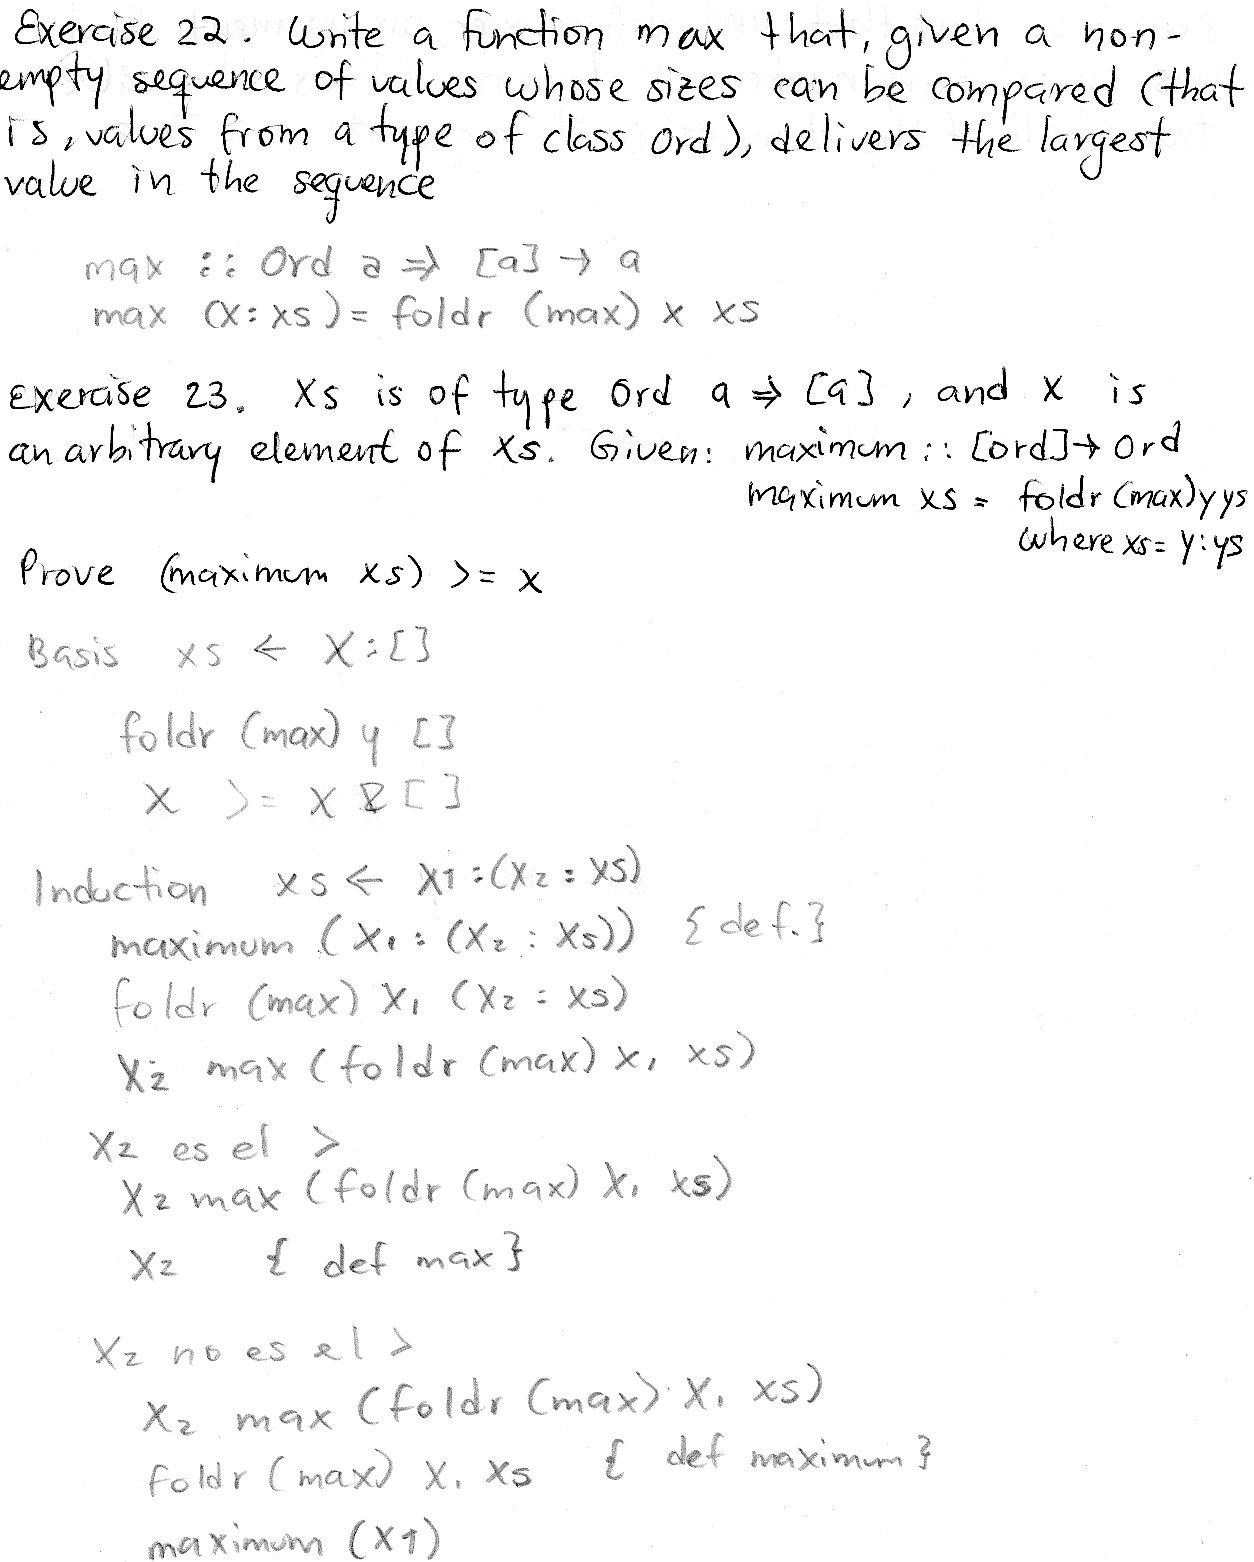 Exercise 22. Write a function max that, given a non-
empty sequence of values whose sizes can be compared (that
is, values from a type of class Ord), delivers the largest
value in the sequence
max :: Ord a => [a] → a
max (x:xs) = foldr (max) x xs
Exercise 23. Xs is of type Ord a => [a], and X is
an arbitrary element of Xs. Given: maximum :: [ord] → Ord
maximum xs = foldr (max) y ys
where xs = y:ys
Prove (maximum xs) >= x
Basis xs ← X:[]
foldr (max) y []
X >= X []
Induction xs ← X1:(X2:XS)
maximum (X1:(X2:Xs)) {def.}
foldr (max) X1 (X2:xs)
X2 max (foldr (max) x1 xs)
X2 es el >
X2 max (foldr (max) X1 xs)
X2 { def max}
X2 no es el >
X2 max (foldr (max) X1 xs)
foldr (max) X1 Xs { def maximum}
maximum (X1)